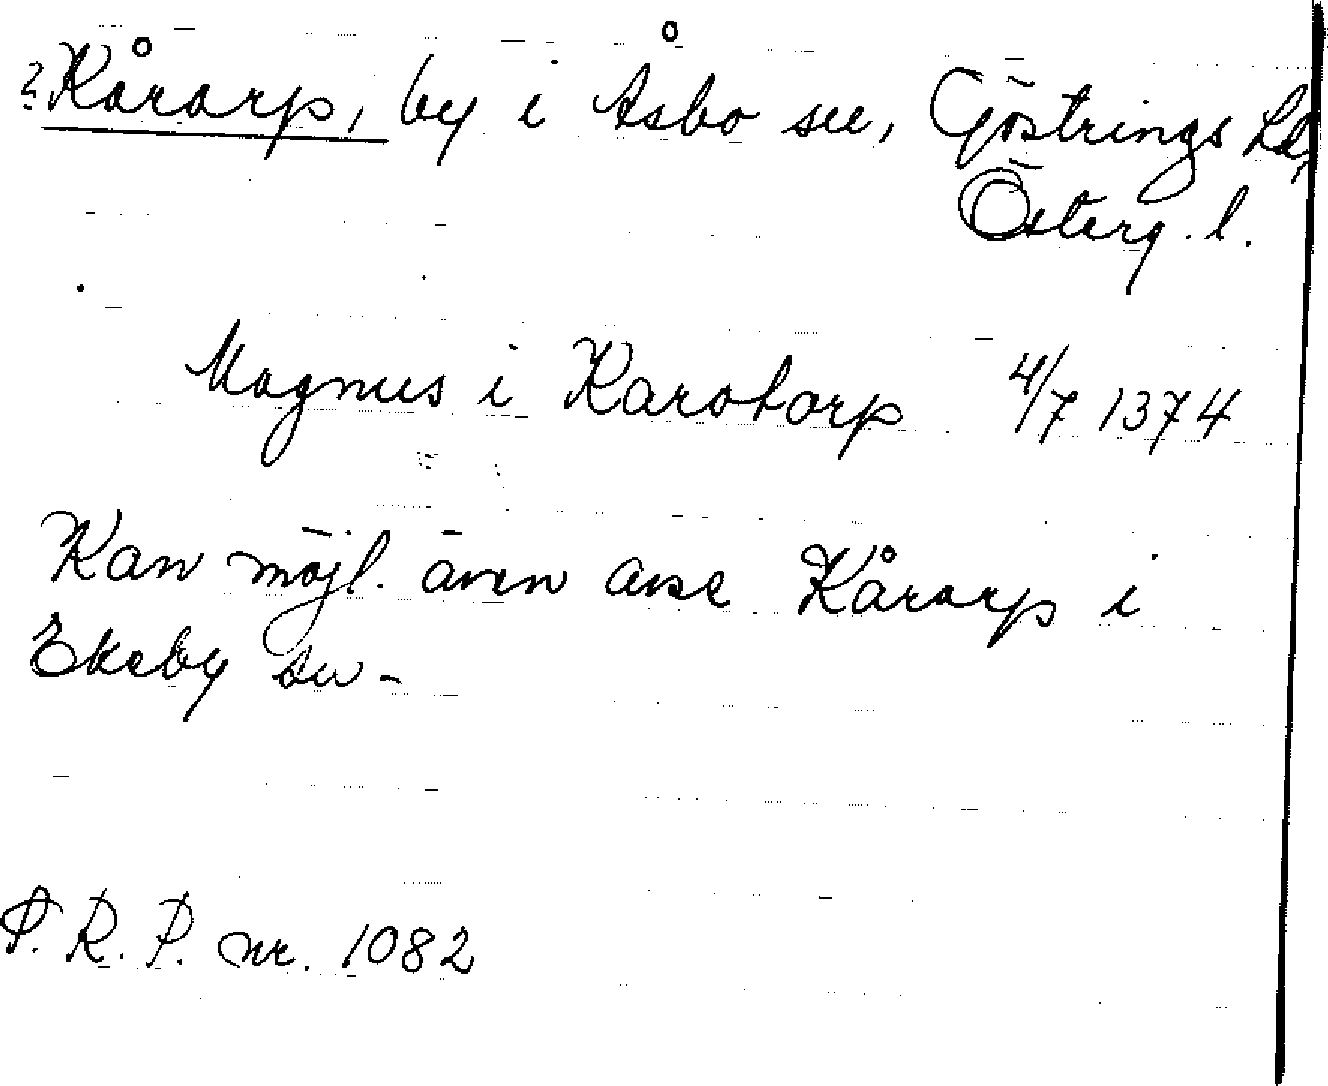 ? Kårarp, by i Åsbo sn, Göstrings hd,
Österg. l.
Magnus i Karatorp 4/7 1374
Kan möjl. även avse Kårarp i
Ekeby sn.
P. R. P. nr. 1082